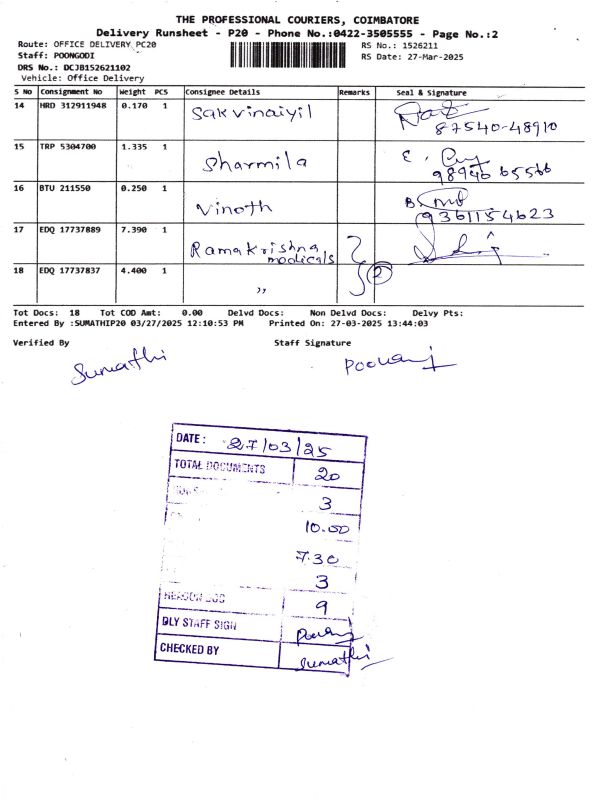 THE PROFESSIONAL COURIERS, COIMBATORE
Delivery Runsheet - P20 - Phone No.:0422-3505555 - Page No.:2
Route: OFFICE DELIVERY PC20 RS No.: 1526211
Staff: POONGODI RS Date: 27-Mar-2025
DRS No.: DCJB152621102
Vehicle: Office Delivery
S NO Consignment No Weight PCS Consignee Details Remarks Seal & Signature
14 HRD 312911948 0.170 1 Sakvinaiyil
87540-48910
15 TRP 5304700 1.335 1 Sharmila
98946 65566
16 BTU 211550 0.250 1 Vinoth
9361154623
17 EDQ 17737889 7.390 1 Ramakrishna
medicals
18 EDQ 17737837 4.400 1 ,, 2
Tot Docs: 18 Tot COD Amt: 0.00 Delvd Docs: Non Delvd Docs: Delvy Pts:
Entered By :SUMATHIP20 03/27/2025 12:10:53 PM Printed On: 27-03-2025 13:44:03
Verified By Staff Signature
Sumathi
DATE : 27/03/25
TOTAL DOCUMENTS 20
3
10.00
7.30
3
9
DLY STAFF SIGN
CHECKED BY Sumathi